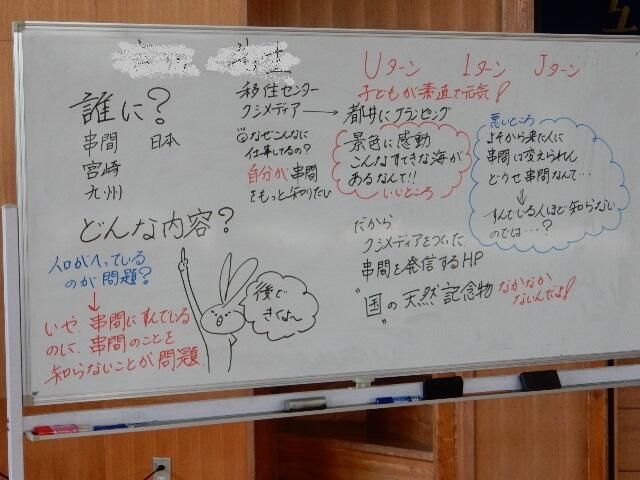 誰に?
串間 日本
宮崎
九州
どんな内容?
人口がへっている
のが問題?
↓
いや、串間にすんでいる
のに、串間のことを
知らないことが問題.
後で
きくよ〜
移住センター
クシメディア→都井にグランピング
なぜこんなに
仕事してるの?
自分が串間
をもっと知りたい
Uターン Iターン Jターン
子どもが素直で元気!
景色に感動
こんなすてきな海が
あるなんて!!
いいところ
だから
クシメディアをつくった.
串間を発信するHP
"国"の天然記念物 なかなか
ないんだよ!
悪いところ
よそから来た人に
串間は変えられん.
どうせ串間なんて…
↓
すんでいる人ほど知らない
のでは…?